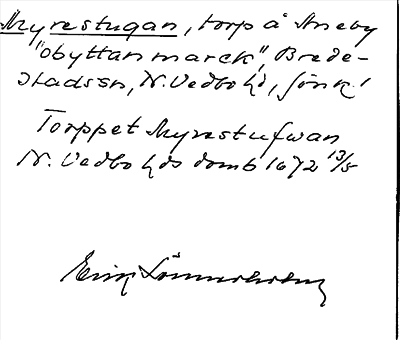 Myrestugan, torp å Aneby
"obyttan marck", Brede-
stadssn, N. Vedbo hd, Jönk. l
Torppet Myrestufwan
N. Vedbo hds domb 1672 13/5
Erik